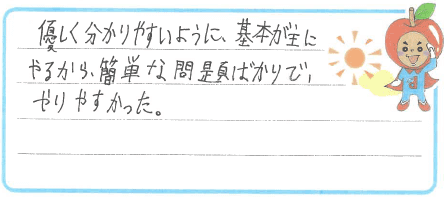 優しく分かりやすいように、基本が主に
やるから、簡単な問題ばかりで、
やりやすかった。